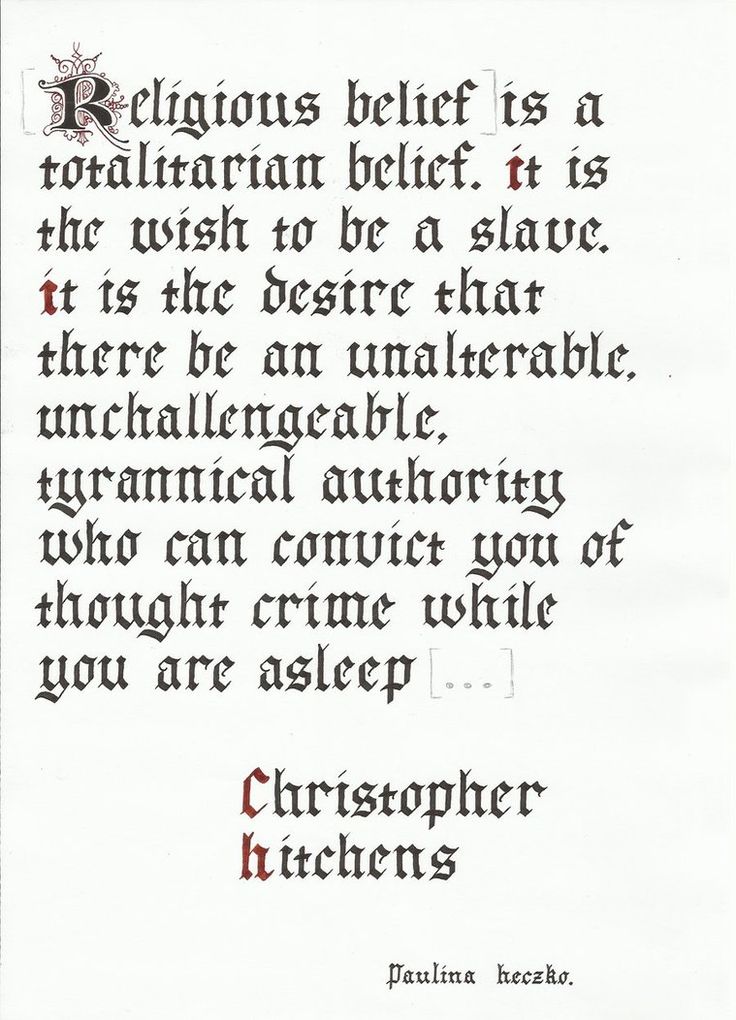 [Religious belief] is a
totalitarian belief. it is
the wish to be a slave.
it is the desire that
there be an unalterable,
unchallengeable,
tyrannical authority
who can convict you of
thought crime while
you are asleep [...]
Christopher
hitchens
Paulina heczko.